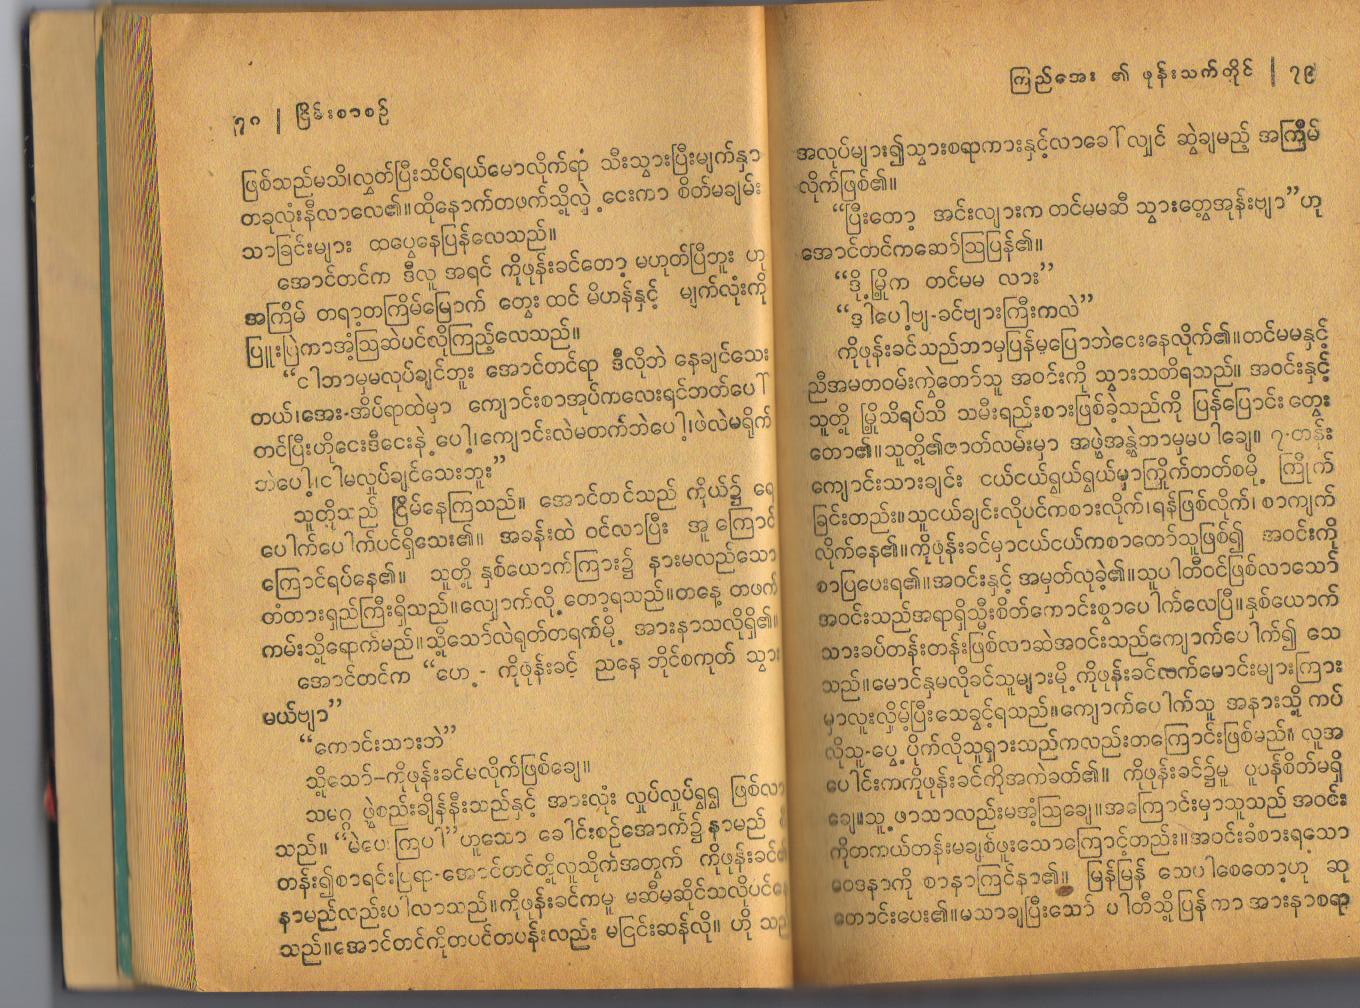 ၇၈ | ငြိမ်းစာစဉ်
ဖြစ်သည်မသိ၊လွှတ်ပြီးသိပ်ရယ်မောလိုက်ရာ သီးသွားပြီးမျက်နှာ
တခုလုံးနီလာလေ၏။ထိုနောက်တဖက်သို့လှဲ့ငေးကာ စိတ်မချမ်း
သာခြင်းများ ထပွေနေပြန်လေသည်။
အောင်တင်က ဒီလူ အရင် ကိုဖုန်းခင်တော့ မဟုတ်ပြီဘူး ဟု
အကြိမ် တရာ့တကြိမ်မြောက် တွေးထင် မိဟန်နှင့် မျက်လုံးကို
ပြူးပြဲကာအံ့ဩဆဲပင်လိုကြည့်လေသည်။
“ငါဘာမှမလုပ်ချင်ဘူး အောင်တင်ရာ ဒီလိုဘဲ နေချင်သေး
တယ်၊အေး-အိပ်ရာထဲမှာ ကျောင်းစာအုပ်ကလေးရင်ဘတ်ပေါ်
တင်ပြီးဟိုငေးဒီငေးနဲ့ပေါ့၊ကျောင်းလဲမတက်ဘဲပေါ့၊ဖဲလဲမရိုက်
ဘဲပေါ့၊ငါမလှုပ်ချင်သေးဘူး”
သူတို့သည် ငြိမ်နေကြသည်။ အောင်တင်သည် ကိုယ်၌ ရေ
ပေါက်ပေါက်ပင်ရှိသေး၏။ အခန်းထဲ ဝင်လာပြီး အူကြောင်
ကြောင်ရပ်နေ၏။ သူတို့နှစ်ယောက်ကြား၌ နားမလည်သော
တံတားရှည်ကြီးရှိသည်။လျှောက်လို့တော့ရသည်။တနေ့ တဖက်
ကမ်းသို့ရောက်မည်။သို့သော်လဲရုတ်တရက်မို့ အားနာသလိုရှိ၏။
အောင်တင်က “ဟေ့- ကိုဖုန်းခင့် ညနေ ဘိုင်စကုတ် သွား
မယ်ဗျာ”
“ကောင်းသားဘဲ”
သို့သော်–ကိုဖုန်းခင်မလိုက်ဖြစ်ချေ။
သမဂ္ဂ ဖွဲ့စည်းချိန်နီးသည်နှင့် အားလုံး လှုပ်လှုပ်ရွရွ ဖြစ်လာ
သည်။ “မဲပေးကြပါ”ဟူသော ခေါင်းစဉ်အောက်၌နာမည်
တန်း၍စာရင်းပြရာ-အောင်တင်တို့လူသိုက်အတွက် ကိုဖုန်းခင်၏
နာမည်လည်းပါလာသည်။ကိုဖုန်းခင်ကမူ မဆီမဆိုင်သလိုပင်နေ
သည်။အောင်တင်ကိုတပင်တပန်းလည်း မငြင်းဆန်လို။ ဟို သည်
ကြည်အေး ၏ ဖုန်းသက်တိုင် | ၇၉
အလုပ်များ၍သွားစရာကားနှင့်လာခေါ်လျှင် ဆွဲချမည့် အကြိမ်
လိုက်ဖြစ်၏။
“ပြီးတော့ အင်းလျားက တင်မမဆီ သွားတွေ့အုန်းဗျာ”ဟု
အောင်တင်ကဆော်ဩပြန်၏။
“ဒို့မြို့က တင်မမ လား”
“ဒါပေါ့ဗျ-ခင်ဗျားကြီးကလဲ”
ကိုဖုန်းခင်သည်ဘာမှပြန်မပြောဘဲငေးနေလိုက်၏။တင်မမနှင့်
ညီအမတဝမ်းကွဲတော်သူ အဝင်းကို သွားသတိရသည်။ အဝင်းနှင့်
သူတို့ မြို့သိရပ်သိ သမီးရည်းစားဖြစ်ခဲ့သည်ကို ပြန်ပြောင်းတွေး
တော၏။သူတို့၏ဇာတ်လမ်းမှာ အဖွဲ့အနွဲ့ဘာမှမပါချေ။ ၇-တန်း
ကျောင်းသားချင်း ငယ်ငယ်ရွယ်ရွယ်မှာကြိုက်တတ်စမို့ ကြိုက်
ခြင်းတည်း။သူငယ်ချင်းလိုပင်ကစားလိုက်၊ရန်ဖြစ်လိုက်၊စာကျက်
လိုက်နေ၏။ကိုဖုန်းခင်မှာငယ်ငယ်ကစာတော်သူဖြစ်၍ အဝင်းကို
စာပြပေးရ၏။အဝင်းနှင့် အမှတ်လုခဲ့၏။သူပါတီဝင်ဖြစ်လာသော်
အဝင်းသည်အရာရှိသမီးစိတ်ကောင်းစွာပေါက်လေပြီ။နှစ်ယောက်
သားခပ်တန်းတန်းဖြစ်လာဆဲအဝင်းသည်ကျောက်ပေါက်၍ သေ
သည်။မောင်နှမလိုခင်သူများမို့ကိုဖုန်းခင်လက်မောင်းများကြား
မှာလူးလှိမ့်ပြီးသေခွင့်ရသည်။ကျောက်ပေါက်သူ အနားသို့ ကပ်
လိုသူ-ပွေ့ပိုက်လိုသူရှားသည်ကလည်းတကြောင်းဖြစ်မည်။ လူအ
ပေါင်းကကိုဖုန်းခင်ကိုအကဲခတ်၏။ ကိုဖုန်းခင်၌မူ ပူပန်စိတ်မရှိ
ချေ။သူ့ဖာသာလည်းမအံ့ဩချေ။အကြောင်းမှာသူသည် အဝင်း
ကိုတကယ်တန်းမချစ်ဖူးသောကြောင့်တည်း။အဝင်းခံစားရသော
ဝေဒနာကို စာနာကြင်နာ၏။ မြန်မြန် သေပါစေတော့ဟု ဆု
တောင်းပေး၏။မသာချပြီးသော် ပါတီသို့ပြန်ကာအားနာစရာ